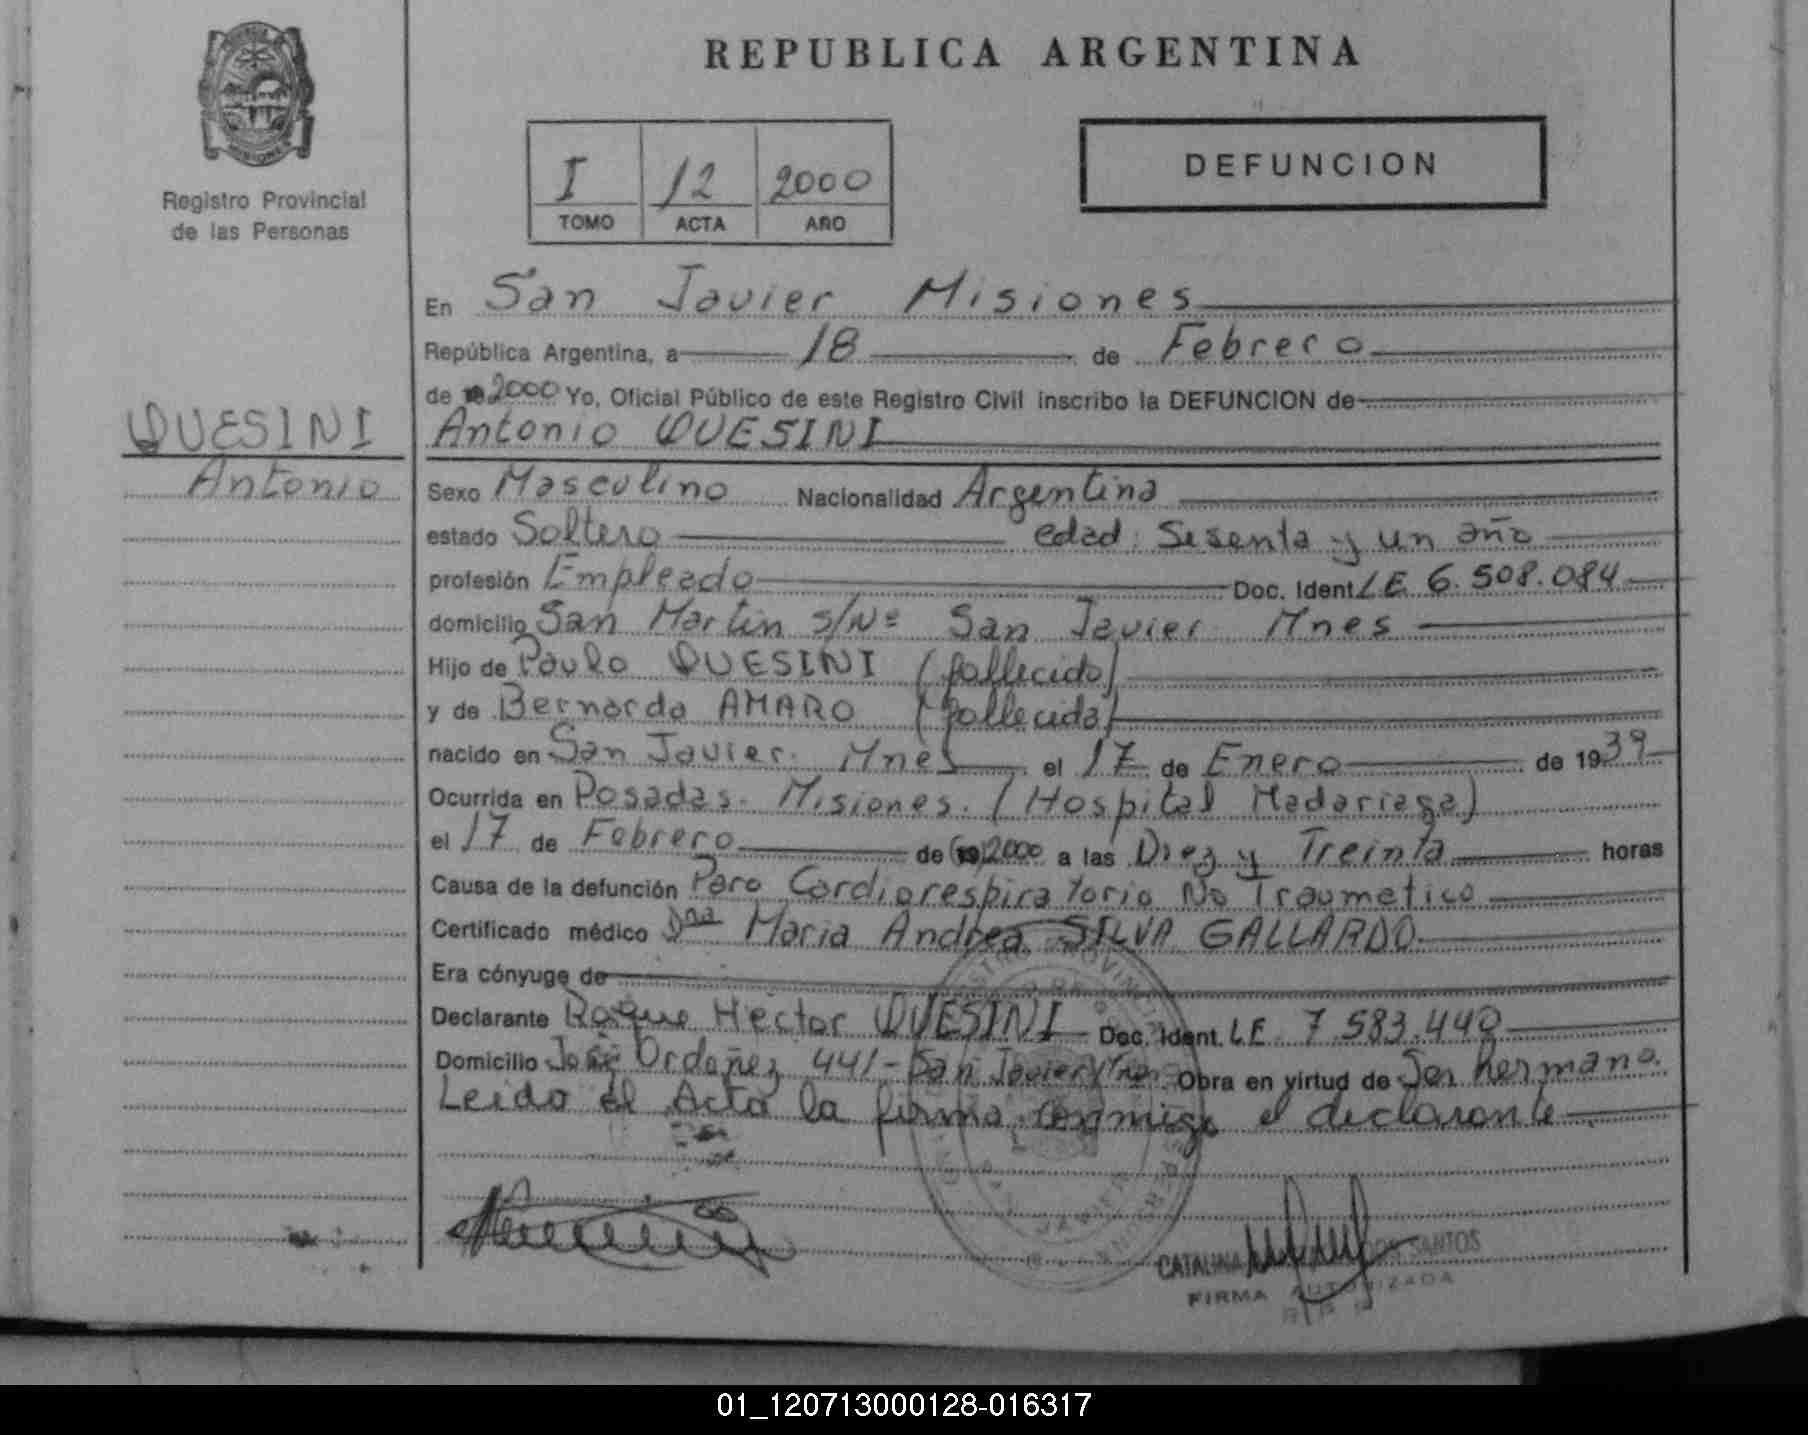 REPUBLICA ARGENTINA
MISIONES
Registro Provincial
de las Personas
I 12 2000
TOMO ACTA AÑO
DEFUNCION
En San Javier Misiones
República Argentina, a 18 de Febrero
de 2000 Yo, Oficial Público de este Registro Civil inscribo la DEFUNCION de
QUESINI Antonio QUESINI
Antonio Sexo Masculino Nacionalidad Argentina
estado Soltero edad: Sesenta y un año
profesión Empleado Doc. Ident. LE 6.508.084
domicilio San Martin s/Nº San Javier Mnes
Hijo de Paulo QUESINI (fallecido)
y de Bernarda AMARO (fallecida)
nacido en San Javier. Mnes el 17 de Enero de 1939
Ocurrida en Posadas. Misiones. (Hospital Madariaga)
el 17 de Febrero de (19)2000 a las Diez y Treinta horas
Causa de la defunción Paro Cardiorespiratorio No Traumatico
Certificado médico Dra Maria Andrea SILVA GALLARDO
Era cónyuge de
Declarante Roque Hector QUESINI Doc. Ident. LE 7.583.440
Domicilio José Ordoñez 441- San Javier Mnes Obra en virtud de Ser hermano.
Leido el Acta la firma conmigo el declarante
CATALINA DOS SANTOS
FIRMA AUTORIZADA
01_120713000128-016317